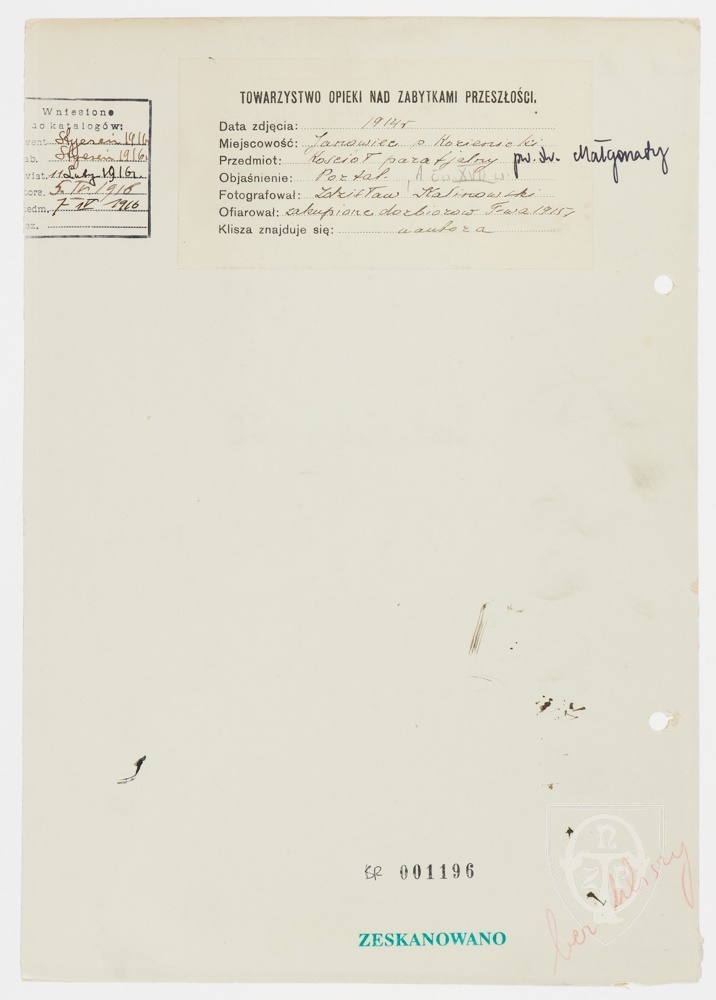 Wniesione
do katalogów:
went. Styczeń 1916
ab. Styczeń 1916
wiat. 11 Luty 1916 r.
tors. 5. IV. 1916
edm. 7 IV 1916
ez.
TOWARZYSTWO OPIEKI NAD ZABYTKAMI PRZESZŁOŚCI.
Data zdjęcia: 1914 r
Miejscowość: Janowiec p. Kozienicki
Przedmiot: Kościół parafjalny pw. św. Małgorzaty
Objaśnienie: Portal. XVII w.
Fotografował: Zdzisław Kalinowski
Ofiarował: zakupione do zbiorów T-wa 1915 r
Klisza znajduje się: u autora
SR 001196
ZESKANOWANO
bez kliszy